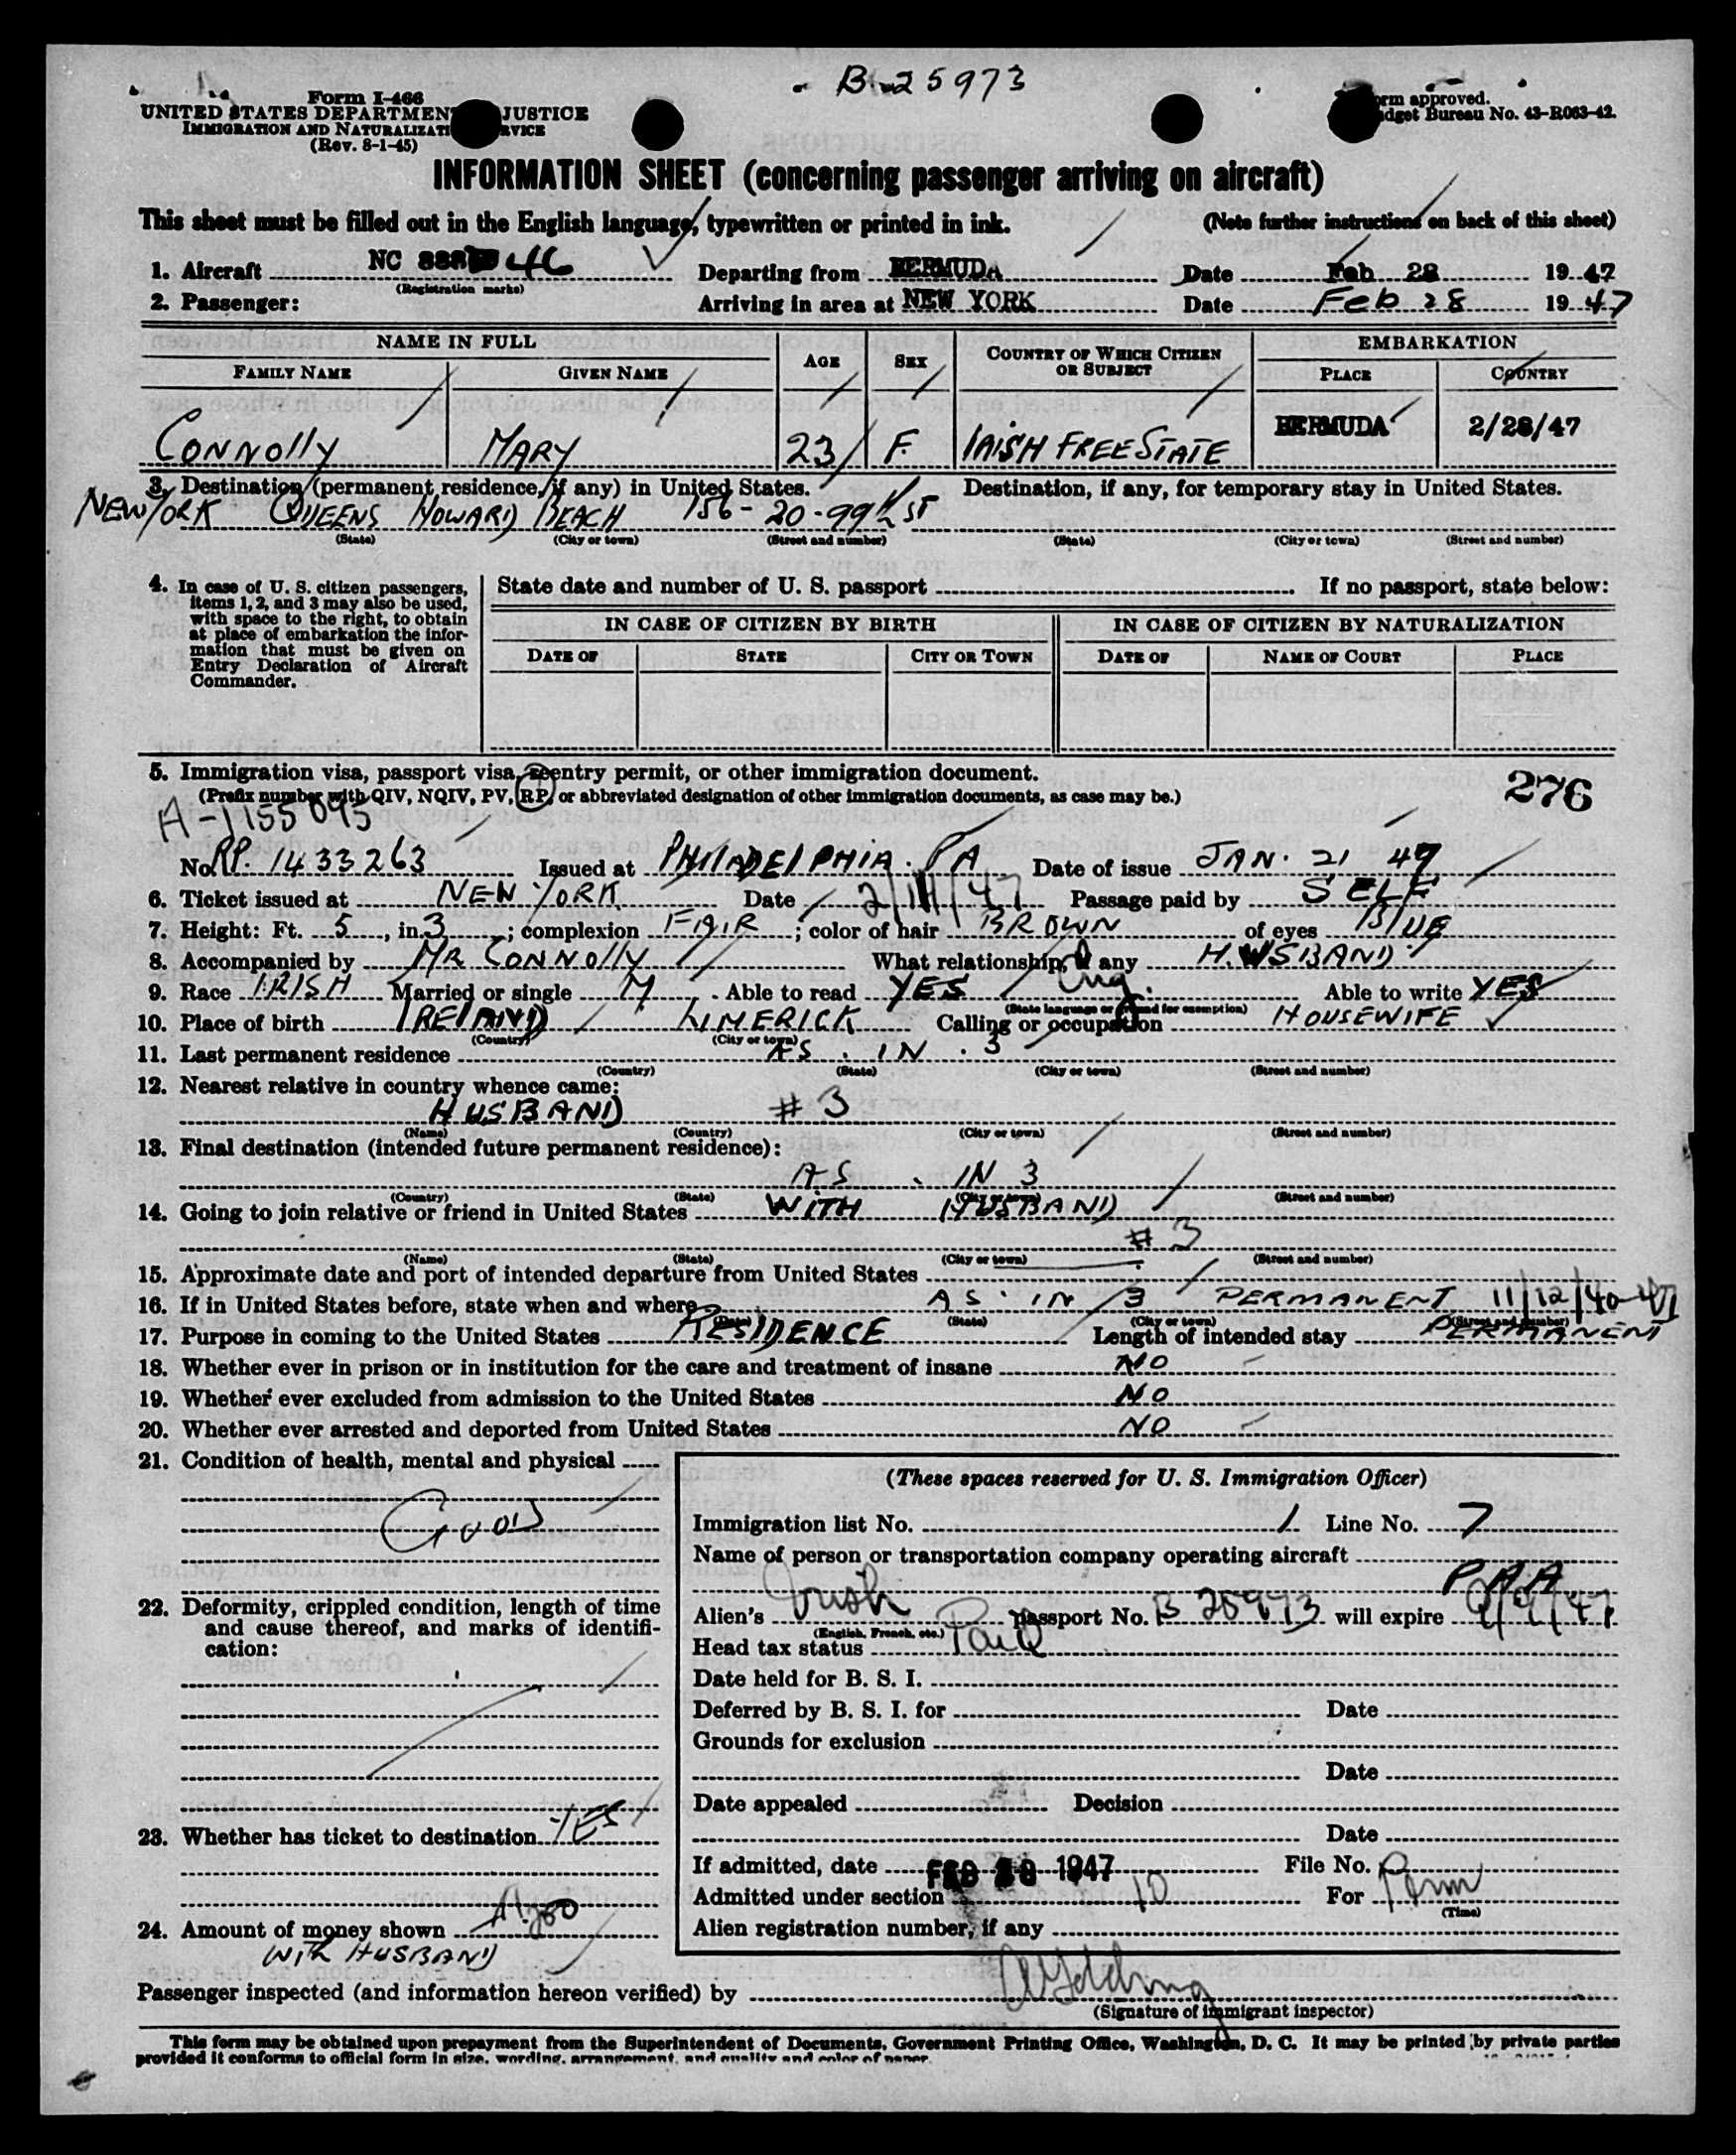 B-25973
Form I-466
UNITED STATES DEPARTMENT JUSTICE
IMMIGRATION AND NATURALIZATI RVICE
(Rev. 8-1-45)
orm approved.
dget Bureau No. 43-R063-42.
INFORMATION SHEET (concerning passenger arriving on aircraft)
This sheet must be filled out in the English language, typewritten or printed in ink. (Note further instructions on back of this sheet)
1. Aircraft NC 888 46 Departing from BERMUDA Date Feb 28 1947
(Registration marks)
2. Passenger: Arriving in area at NEW YORK Date Feb 28 1947
NAME IN FULL
FAMILY NAME GIVEN NAME AGE SEX COUNTRY OF WHICH CITIZEN OR SUBJECT EMBARKATION
PLACE COUNTRY
CONNOLLY MARY 23 F. IRISH FREE STATE BERMUDA 2/28/47
3. Destination (permanent residence, if any) in United States. Destination, if any, for temporary stay in United States.
NEW YORK QUEENS HOWARD BEACH 156-20-99th ST
(State) (City or town) (Street and number) (State) (City or town) (Street and number)
4. In case of U. S. citizen passengers, items 1, 2, and 3 may also be used, with space to the right, to obtain at place of embarkation the information that must be given on Entry Declaration of Aircraft Commander.
State date and number of U. S. passport If no passport, state below:
IN CASE OF CITIZEN BY BIRTH IN CASE OF CITIZEN BY NATURALIZATION
DATE OF STATE CITY OR TOWN DATE OF NAME OF COURT PLACE
5. Immigration visa, passport visa, reentry permit, or other immigration document.
(Prefix number with QIV, NQIV, PV, RP, or abbreviated designation of other immigration documents, as case may be.)
276
A-1155095
No. RP. 1433263 Issued at PHILADELPHIA. PA Date of issue JAN. 21 47
6. Ticket issued at NEW YORK Date 2/14/47 Passage paid by SELF
7. Height: Ft. 5, in. 3; complexion FAIR; color of hair BROWN of eyes BLUE
8. Accompanied by MR CONNOLLY What relationship, if any HUSBAND
9. Race IRISH Married or single M. Able to read YES Eng. Able to write YES
(State language or ground for exemption)
10. Place of birth IRELAND LIMERICK Calling or occupation HOUSEWIFE
(Country) (City or town)
11. Last permanent residence AS. IN. 3
(Country) (State) (City or town) (Street and number)
12. Nearest relative in country whence came:
HUSBAND # 3
(Name) (Country) (City or town) (Street and number)
13. Final destination (intended future permanent residence):
AS. IN 3
(Country) (State) (City or town) (Street and number)
14. Going to join relative or friend in United States WITH HUSBAND
# 3
(Name) (State) (City or town) (Street and number)
15. Approximate date and port of intended departure from United States
16. If in United States before, state when and where AS. IN 3 PERMANENT 11/12/40-47
(Date) (State) (City or town) (Street and number)
17. Purpose in coming to the United States RESIDENCE Length of intended stay PERMANENT
18. Whether ever in prison or in institution for the care and treatment of insane NO
19. Whether ever excluded from admission to the United States NO
20. Whether ever arrested and deported from United States NO
21. Condition of health, mental and physical
GOOD
22. Deformity, crippled condition, length of time and cause thereof, and marks of identification:
23. Whether has ticket to destination YES
24. Amount of money shown
WITH HUSBAND
(These spaces reserved for U. S. Immigration Officer)
Immigration list No. 1 Line No. 7
Name of person or transportation company operating aircraft
PAA
Alien's Irish passport No. B 25973 will expire
(English, French, etc.)
Head tax status Paid
Date held for B. S. I.
Deferred by B. S. I. for Date
Grounds for exclusion
Date
Date appealed Decision
Date
If admitted, date FEB 28 1947 File No.
Admitted under section 10 For Perm
(Time)
Alien registration number, if any
Passenger inspected (and information hereon verified) by
(Signature of immigrant inspector)
This form may be obtained upon prepayment from the Superintendent of Documents, Government Printing Office, Washington, D. C. It may be printed by private parties
provided it conforms to official form in size, wording, arrangement, and quality and color of paper.